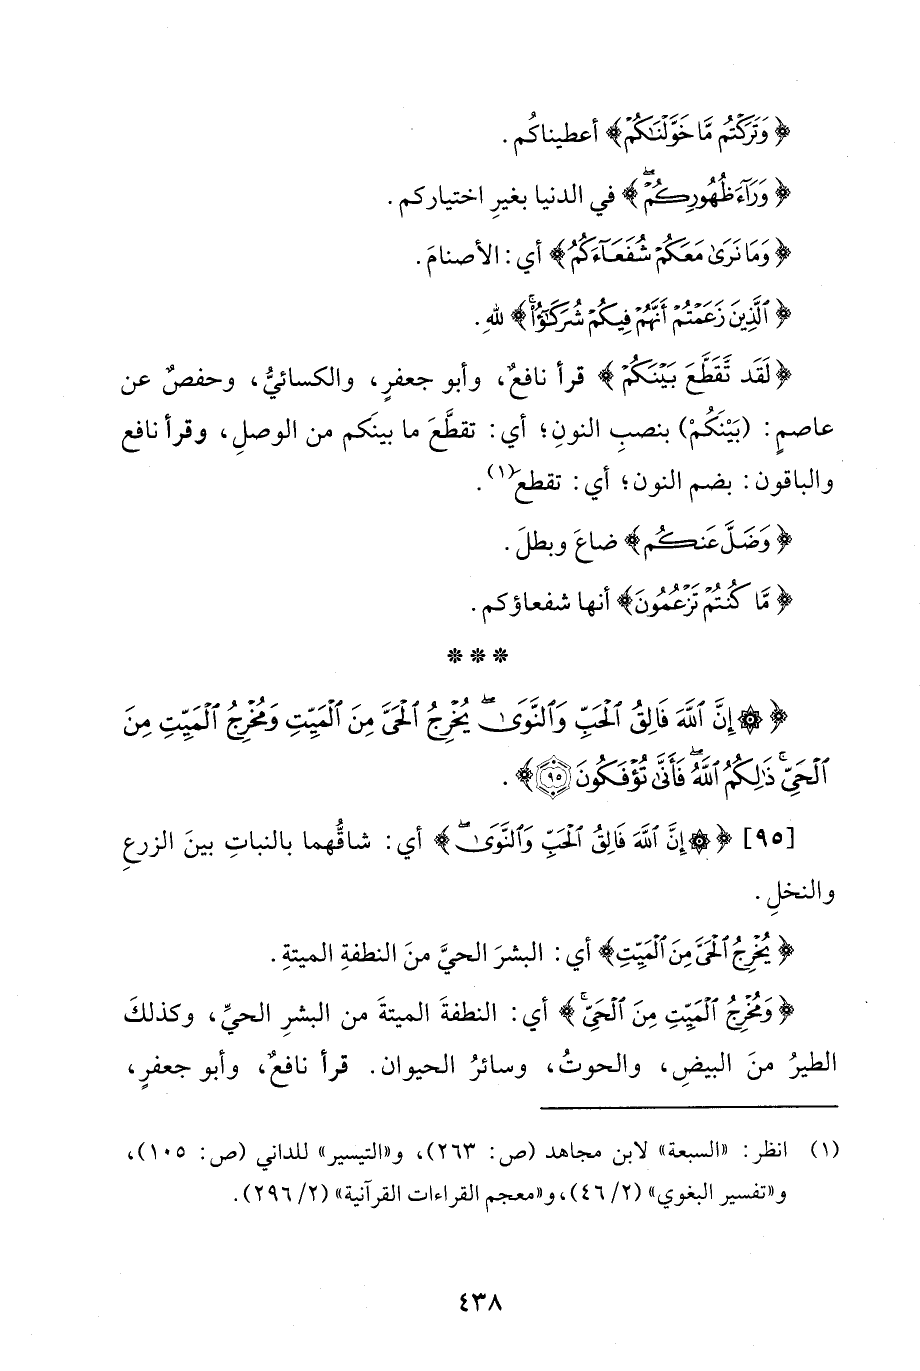 ﴿وَتَرَكْتُم مَّا خَوَّلْنَاكُمْ﴾ أعطيناكُم.
﴿وَرَاءَ ظُهُورِكُمْ﴾ في الدنيا بغيرِ اختياركم.
﴿وَمَا نَرَىٰ مَعَكُمْ شُفَعَاءَكُمُ﴾ أي: الأصنامَ.
﴿الَّذِينَ زَعَمْتُمْ أَنَّهُمْ فِيكُمْ شُرَكَاؤُا﴾ للهِ.
﴿لَقَد تَّقَطَّعَ بَيْنَكُمْ﴾ قرأ نافعٌ، وأبو جعفرٍ، والكسائيُّ، وحفصٌ عن
عاصمٍ: (بَيْنَكُمْ) بنصبِ النونِ؛ أي: تقطَّعَ ما بينَكم من الوصلِ، وقرأ نافع
والباقون: بضم النون؛ أي: تقطع(١).
﴿وَضَلَّ عَنكُم﴾ ضاعَ وبطلَ.
﴿مَّا كُنتُمْ تَزْعُمُونَ﴾ أنها شفعاؤكم.
* * *
﴿۞ إِنَّ اللَّهَ فَالِقُ الْحَبِّ وَالنَّوَىٰ ۖ يُخْرِجُ الْحَيَّ مِنَ الْمَيِّتِ وَمُخْرِجُ الْمَيِّتِ مِنَ
الْحَيِّ ۚ ذَٰلِكُمُ اللَّهُ ۖ فَأَنَّىٰ تُؤْفَكُونَ ٩٥﴾.
[٩٥] ﴿۞ إِنَّ اللَّهَ فَالِقُ الْحَبِّ وَالنَّوَىٰ ۖ﴾ أي: شاقُّهما بالنباتِ بينَ الزرعِ
والنخلِ.
﴿يُخْرِجُ الْحَيَّ مِنَ الْمَيِّتِ﴾ أي: البشرَ الحيَّ منَ النطفةِ الميتةِ.
﴿وَمُخْرِجُ الْمَيِّتِ مِنَ الْحَيِّ ۚ﴾ أي: النطفةَ الميتةَ من البشرِ الحيِّ، وكذلكَ
الطيرُ منَ البيضِ، والحوتُ، وسائرُ الحيوان. قرأ نافعٌ، وأبو جعفرٍ،
(١) انظر: «السبعة» لابن مجاهد (ص: ٢٦٣)، و«التيسير» للداني (ص: ١٠٥)،
و«تفسير البغوي» (٢/ ٤٦)، و«معجم القراءات القرآنية» (٢/ ٢٩٦).
٤٣٨